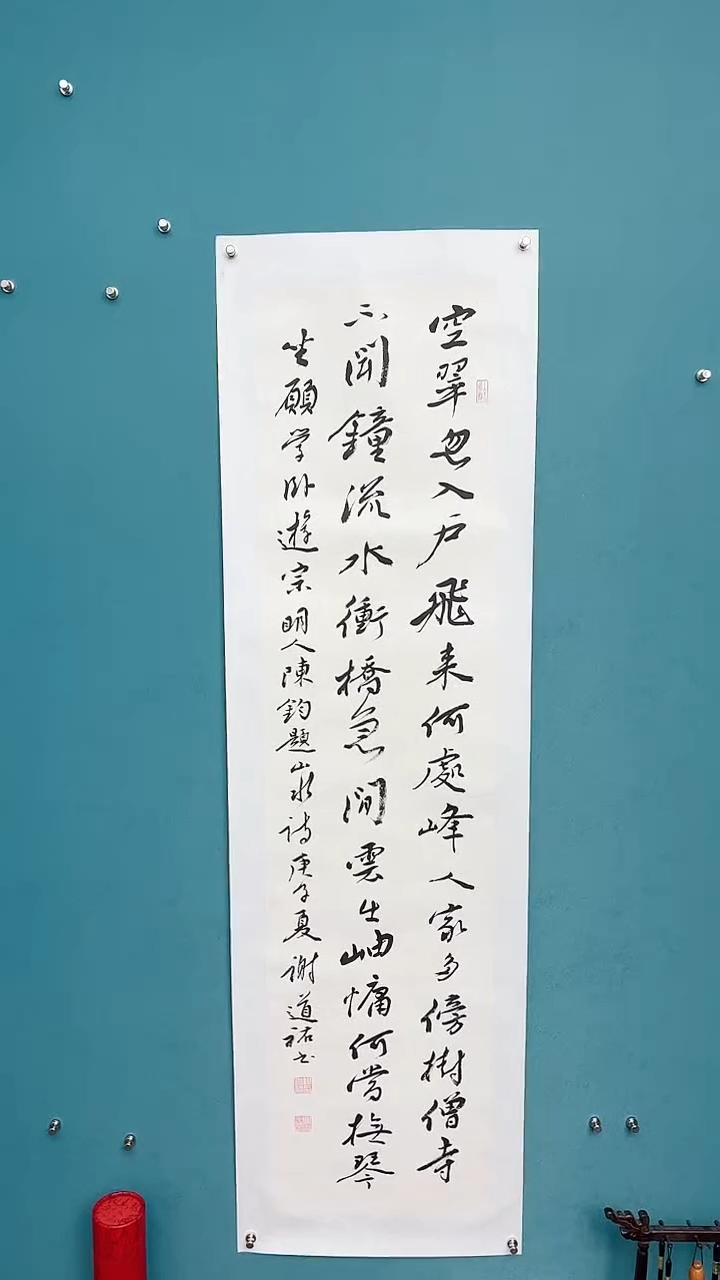 空翠忽入户飛来何處峰人家多傍樹僧寺
不聞鐘流水衝橋急閒雲出岫慵何當撫琴
坐願学卧遊宗明人陳鈞題山水詩庚子夏謝道祐书